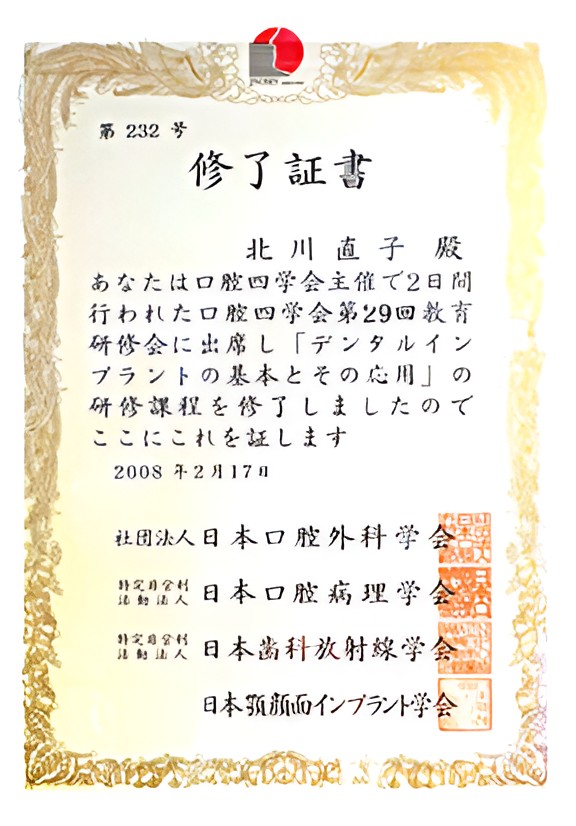 第 232 号
修了証書
北川直子 殿
あなたは口腔四学会主催で2日間
行われた口腔四学会第29回教育
研修会に出席し「デンタルイン
プラントの基本とその応用」の
研修課程を修了しましたので
ここにこれを証します
2008 年2月17日
社団法人日本口腔外科学会
特定非営利活動法人 日本口腔病理学会
特定非営利活動法人 日本歯科放射線学会
日本顎顔面インプラント学会